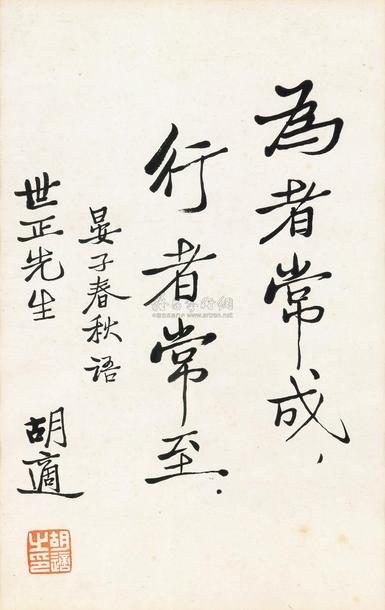 為者常成，
行者常至．
晏子春秋语
世正先生
胡適
胡適之印
www.artron.net